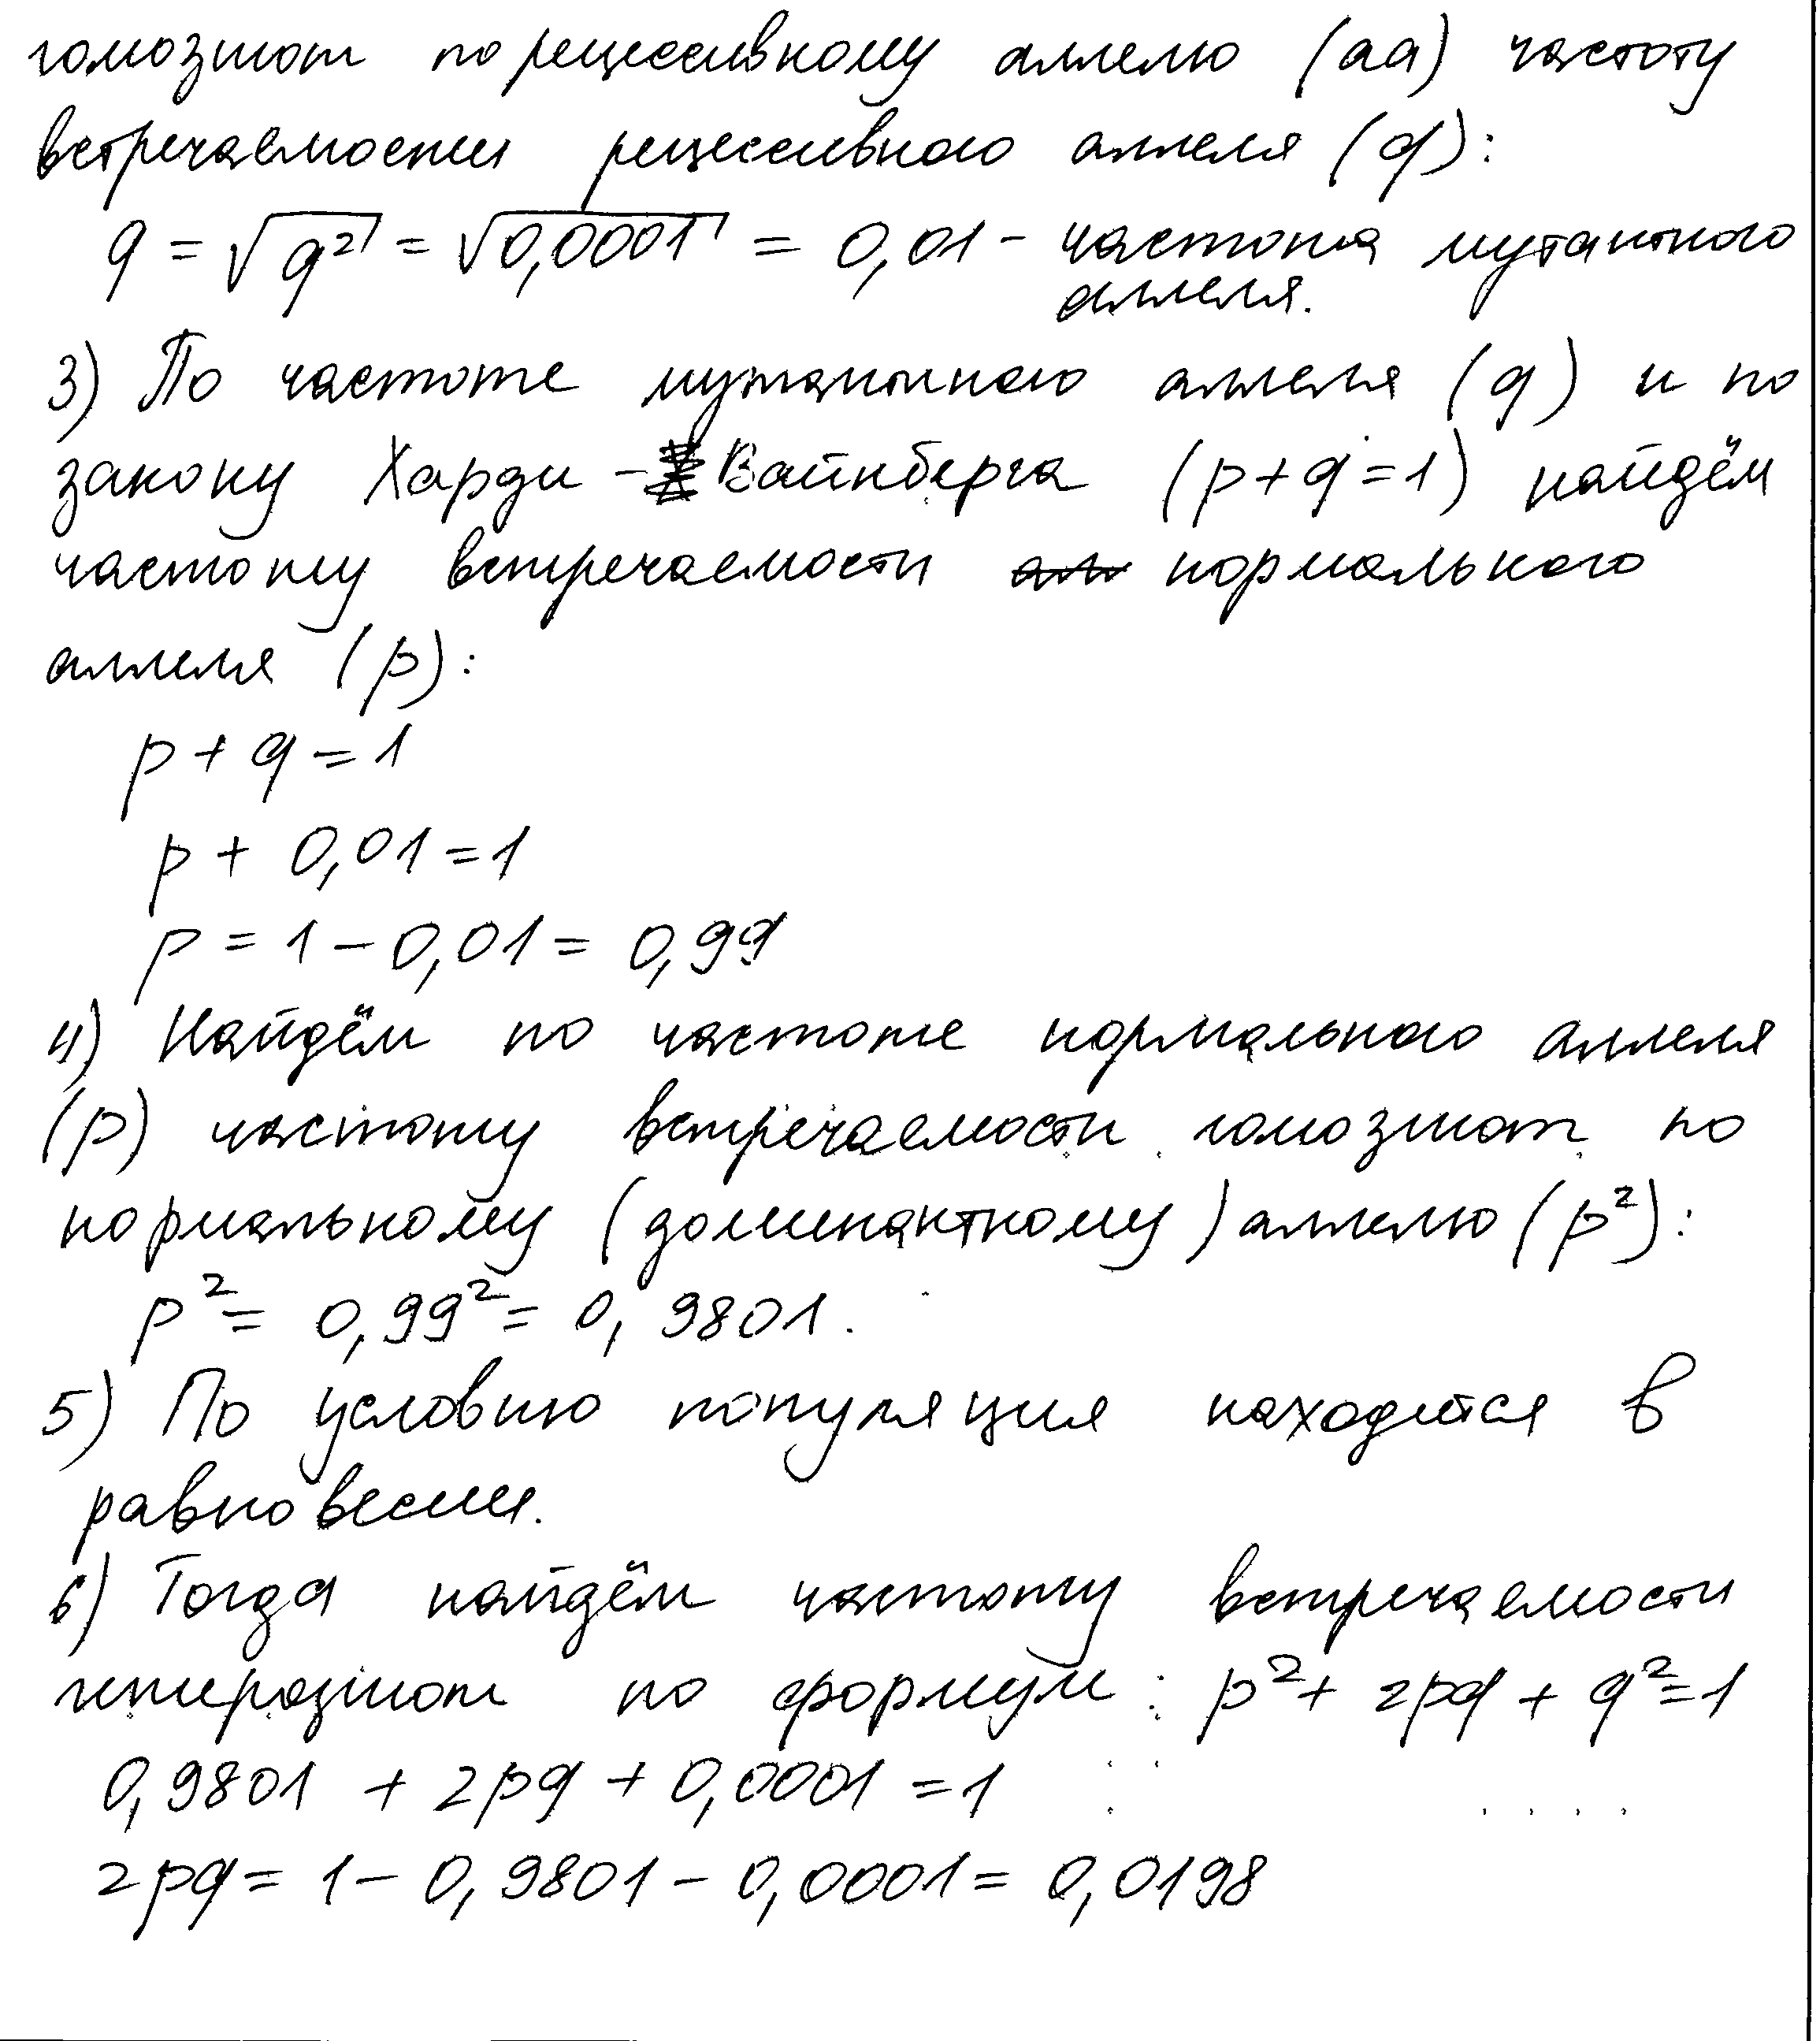 гомозигот по рецессивному аллелю (аа) частоту
встречаемости рецессивного аллеля (q):
q = √q² = √0,0001 = 0,01 - частота мутантного
аллеля.
3) По частоте мутантного аллеля (q) и по
закону Харди - Вайнберга (p+q=1) найдём
частоту встречаемости нормального
аллеля (p):
p + q = 1
p + 0,01 = 1
p = 1 - 0,01 = 0,99
4) Найдём по частоте нормального аллеля
(p) частоту встречаемости гомозигот по
нормальному (доминантному) аллелю (p²):
p² = 0,99² = 0,9801.
5) По условию популяция находится в
равновесии.
6) Тогда найдём частоту встречаемости
гетерозигот по формуле: p² + 2pq + q² = 1
0,9801 + 2pq + 0,0001 = 1
2pq = 1 - 0,9801 - 0,0001 = 0,0198